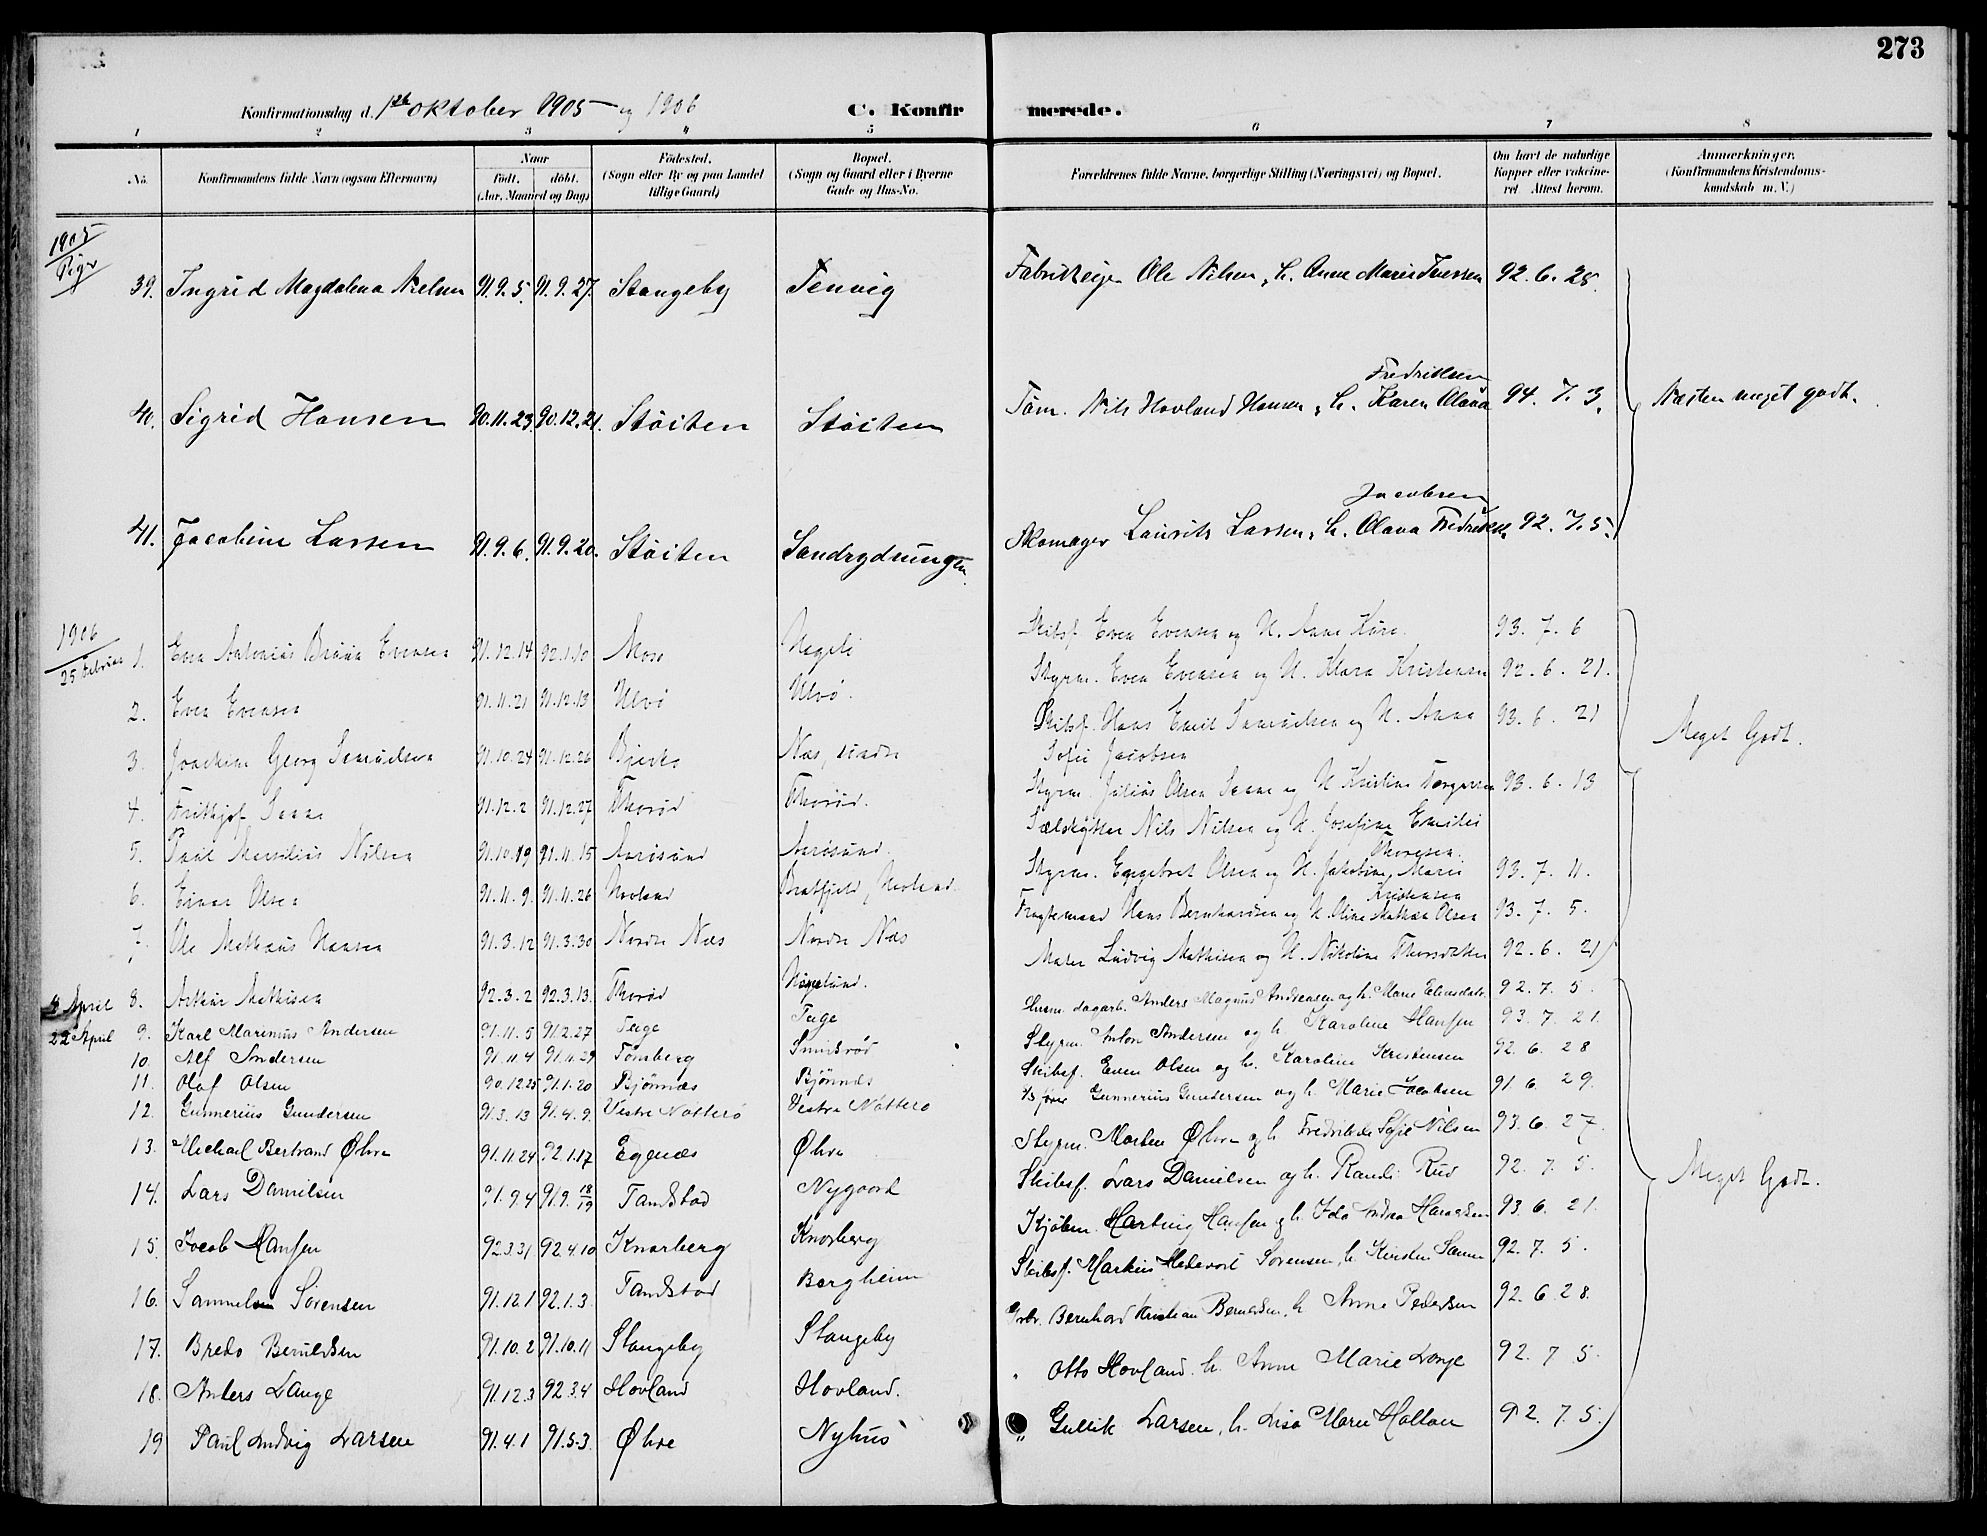 273
Konfirmationsdag d. 1ste oktober 1905 og 1906 C. Konfirmerede.
1 2 3 4 5 6 7 8
No. Konfirmandens fulde Navn (ogsaa Efternavn) Naar födt. döbt. (Aar, Maaned og Dag) Födested. (Sogn eller By og paa Landet tillige Gaard) Bopæl. (Sogn og Gaard eller i Byerne Gade og Hus-No. Forældrenes fulde Navne, borgerlige Stilling (Næringsvei) og Bopæl. Om havt de naturlige Kopper eller vakcineret. Attest herom. Anmærkninger. (Konfirmandens Kristendomskundskab m. V.)
1905
Piger
39. Ingrid Magdalena Nielsen 91.9.5. 91.9.27. Stangeby Tenvig Fabrikeier Ole Nilsen, h. Anne Marie Iversen 92.6.28.
40. Sigrid Hansen 90.11.23. 90.12.21. Stöiten Stöiten Töm. Nils Hovland Hansen, h. Karen Olava Fredriksen 94.7.3. Næsten meget godt.
41. Jacobine Larsen 91.9.6. 91.9.20. Stöiten Sandrydningen. Skomager Laurits Larsen, h. Olava Fredrikke Jacobsen 92.7.5.
1906
25 Februar
1. Even Antonius Bruun Evensen 91.12.14 92.1.10 Moss Hegeli Skibsf. Even Evensen og H. Anne 93.7.6
2. Even Evensen 91.11.21 91.12.13 Ulvö Ulvö. Styrm. Even Evensen og H. Klara Kristensen 92.6.21.
3. Joachim Georg Samuelsen 91.10.24 91.12.26 Bjerke Næs, søndre Skibsf. Hans Emil Samuelsen og H. Anna Sofie Jacobsen 93.6.21 Meget Godt.
4. Frithjof Sanne 91.12.2 91.12.27 Thorød Thorød. Styrm. Julius Olsen Sanne og H. Kristine Torgersen 93.6.13
5. Paul Marsilius Nilsen 91.10.19 91.11.15 Aarösund Aarösund. Sælskytter Nils Nilsen og H. Josefine Emilie Thoresen.
6. Einar Olsen 91.11.9. 91.11.26 Hovland Bratfjeld, Hovland. Styrm. Engebret Olsen og H. Jakobine Marie Kristensen 93.7.11.
7. Ole Mathæus Hansen 91.3.12 91.3.30 Nordre Næs Nordre Næs Fragtemand Hans Bernhardsen og H. Oline Mathea Olsen 93.7.5.
8. Arthur Mathisen 92.3.2 92.3.13. Thorød Høgelund. Maler Ludvig Mathisen og H. Nikoline Thorsdatter 92.6.21
April
22 April
9. Karl Marinius Andersen 91.11.5 91.2.27 Teige Teige dagarb. Anders Magnus Andreasen og h. Marie Eliasdatr. 92.7.5.
10. Alf Andersen 91.11.4 91.11.29 Tönsberg Smidsröd Styrm. Anton Andersen og h. Karoline Hansen 93.7.21
11. Olaf Olsen 90.12.25 91.1.20 Bjönnæs Björnnæs Skibsf. Even Olsen og h. Karoline Kristensen 92.6.28
12. Gunnerius Gundersen 91.3.13 91.4.9. Vestre Nötterö Vestre Nötterö fører Gunnerius Gundersen og h. Marie Jacobsen 91.6.29.
13. Michael Bertrand Øhre 91.11.24 92.1.17 Egenæs Øhre Styrm. Morten Øhre og h. Fredrikke Sofie Nilsen 93.6.27.
14. Lars Danielsen 91.9.4 91.9.18/19 Tandstad Nygaard Skibsf. Lars Danielsen og h. Randi Rud 92.7.5. Meget Godt.
15. Jacob Hansen 92.3.31 92.4.10 Knarberg Knarberg Kjöbm. Hartvig Hansen og h. Ida Andrea Haraldsen 93.6.21.
16. Sammelsen Sörensen 91.12.1 92.1.3. Tandstad Bergheim Skibsf. Markus Hedevart Sörensen, h. Kirsten Sanne 92.7.5.
17. Bredo Berntsen 91.10.2 91.10.11 Stangeby Stangeby Grbr. Bernhard Kristian Berntsen, h. Anne Pedersen 92.6.28.
18. Anders Lange 91.12.3 92.3.4 Hovland Hovland. " Otto Hovland. h. Anne Marie Lange 92.7.5.
19 Paul Ludvig Larsen 91.4.1 91.5.3. Øhre Nyhus " Gullik Larsen, h. Lisa Marie Hallan 92.7.5.